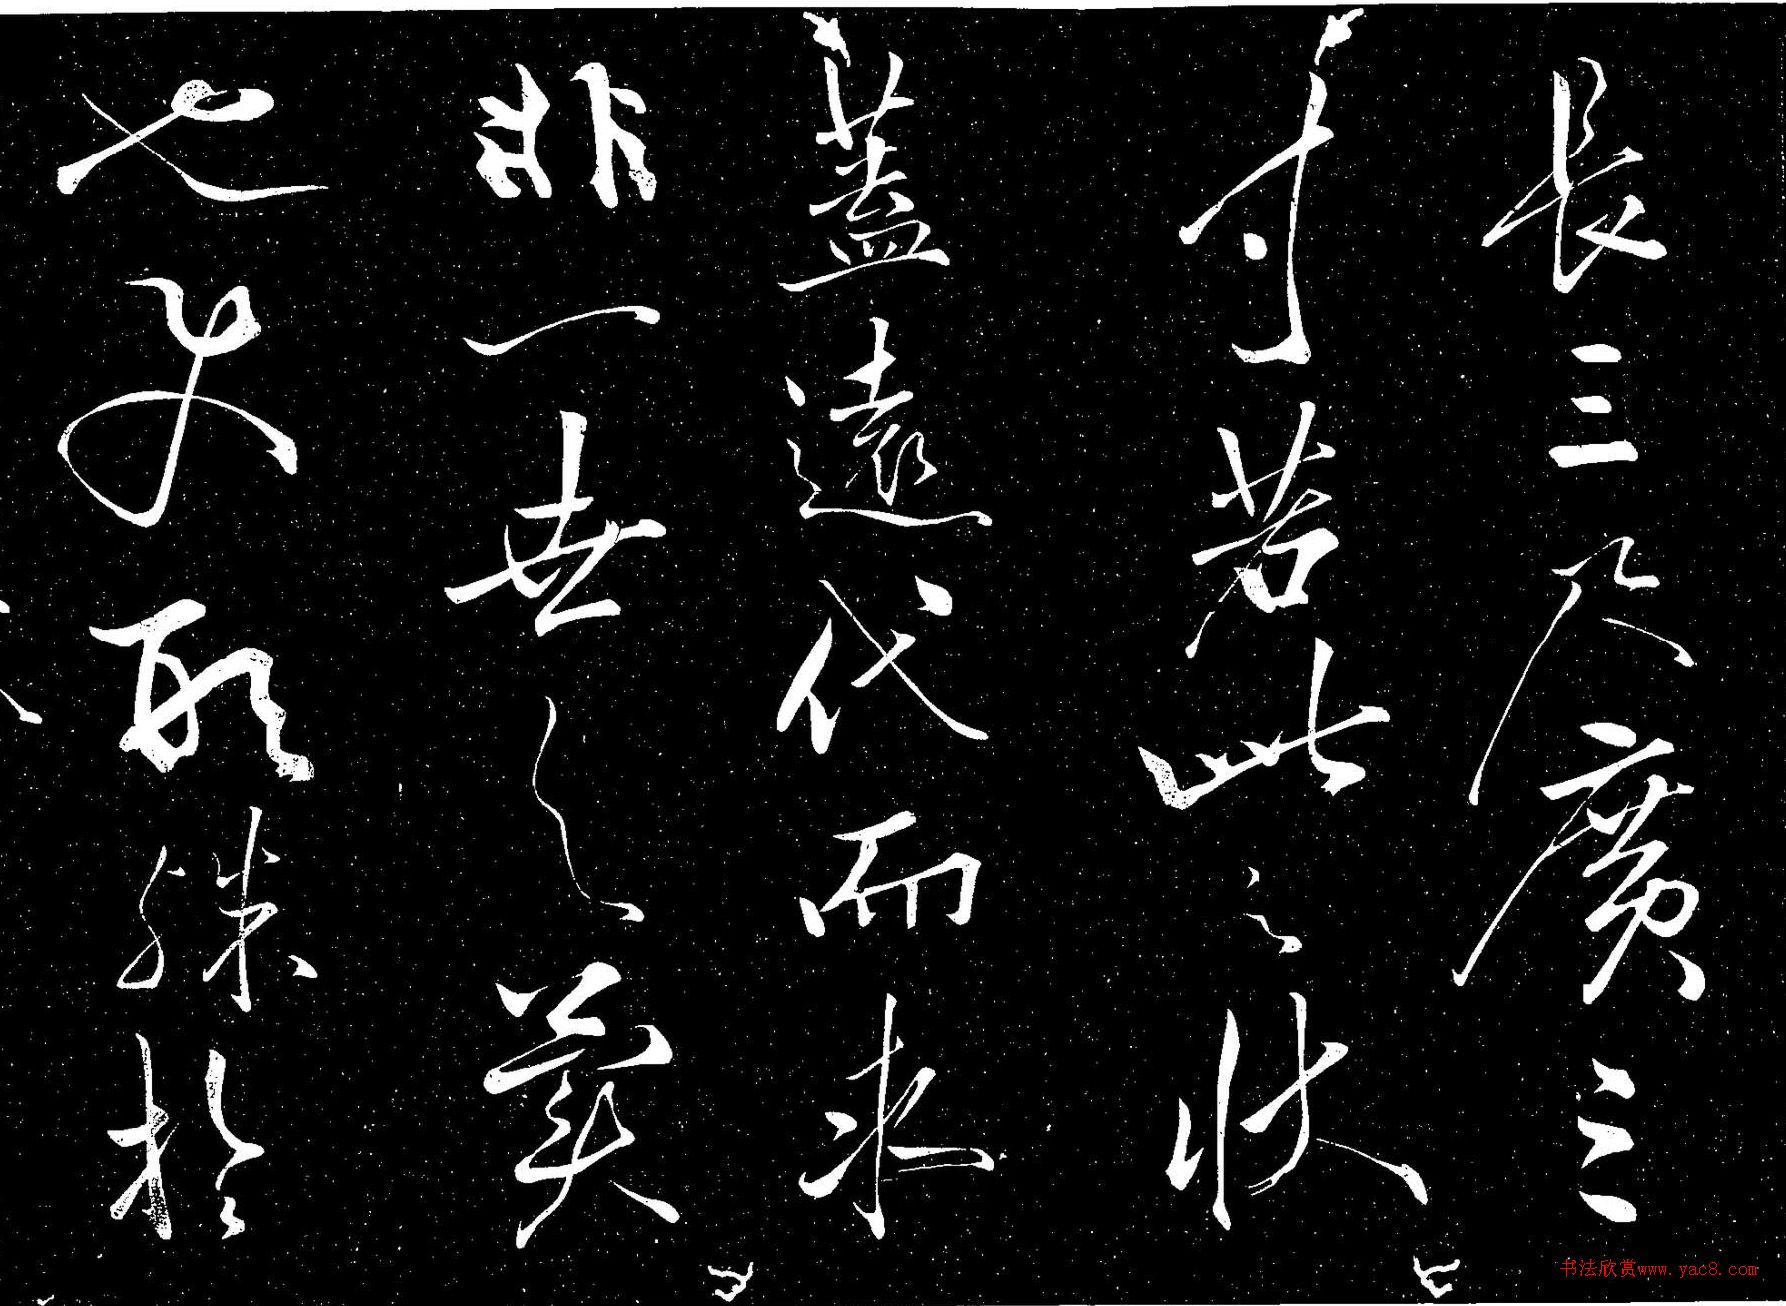 長三尺廣三
寸若此之狀
蓋遠代而求
非一世之
也 取殊於
书法欣赏www.yac8.com